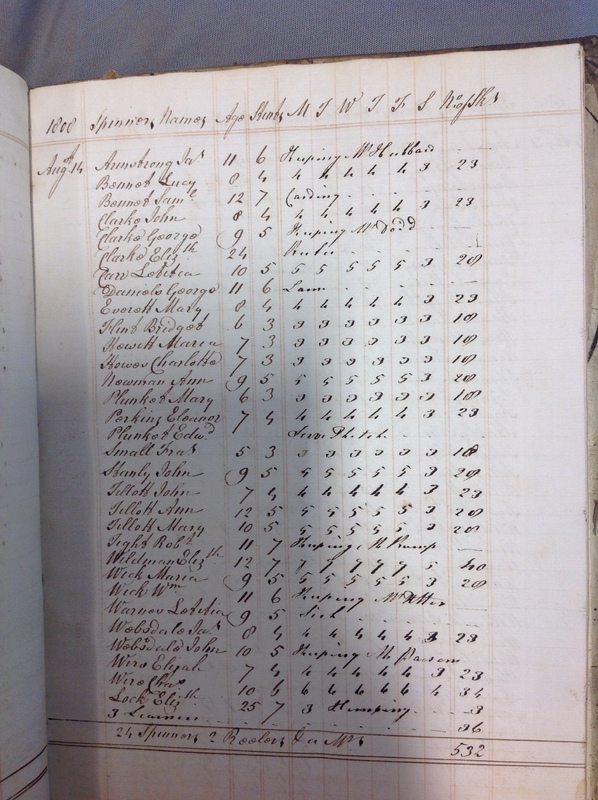 1808 Spinners Names Age Stent M T W T F S No of Sks
Augt 14 Armstrong Jas 11 6 Keeping Mr Hubbard
Bennet Lucy 8 4 4 4 4 4 4 3 23
Bennet Saml 12 7 Carding
Clarke John 8 4 4 4 4 4 4 3 23
Clarke George 9 5 Keeping Mr Dodd
Clarke Elizth 24
Carr Letitia 10 5 5 5 5 5 5 3 28
Daniels George 11 6 Lame
Everett Mary 8 4 4 4 4 4 4 3 23
Flint Bridget 6 3 3 3 3 3 3 3 18
Howett Maria 7 3 3 3 3 3 3 3 18
Howes Charlotte 7 3 3 3 3 3 3 3 18
Newman Ann 9 5 5 5 5 5 5 3 28
Plunket Mary 6 3 3 3 3 3 3 3 18
Perkins Eleanor 7 4 4 4 4 4 4 3 23
Plunket Edwd
Small Fras 5 3 3 3 3 3 3 3 18
Stanly John 9 5 5 5 5 5 5 3 28
Tillott John 7 4 4 4 4 4 4 3 23
Tillott Ann 12 5 5 5 5 5 5 3 28
Tillott Mary 10 5 5 5 5 5 5 3 28
Tight Robt 11 7 Keeping
Wildman Elizth 12 7 7 7 7 7 7 5 40
Weck Maria 9 5 5 5 5 5 5 3 28
Weck Wm 11 6 Keeping Mr
Warner Letitia 9 5 Sick
Websdale Jas 8 4 4 4 4 4 4 3 23
Websdale John 10 5 Keeping Mr Parson
Wire Elijah 7 4 4 4 4 4 4 3 23
Wire Chas 10 6 6 6 6 6 6 4 34
Lock Elizth 25 7 3 Hemping 3
3 Learners 36
24 Spinners 2 Reelers 532